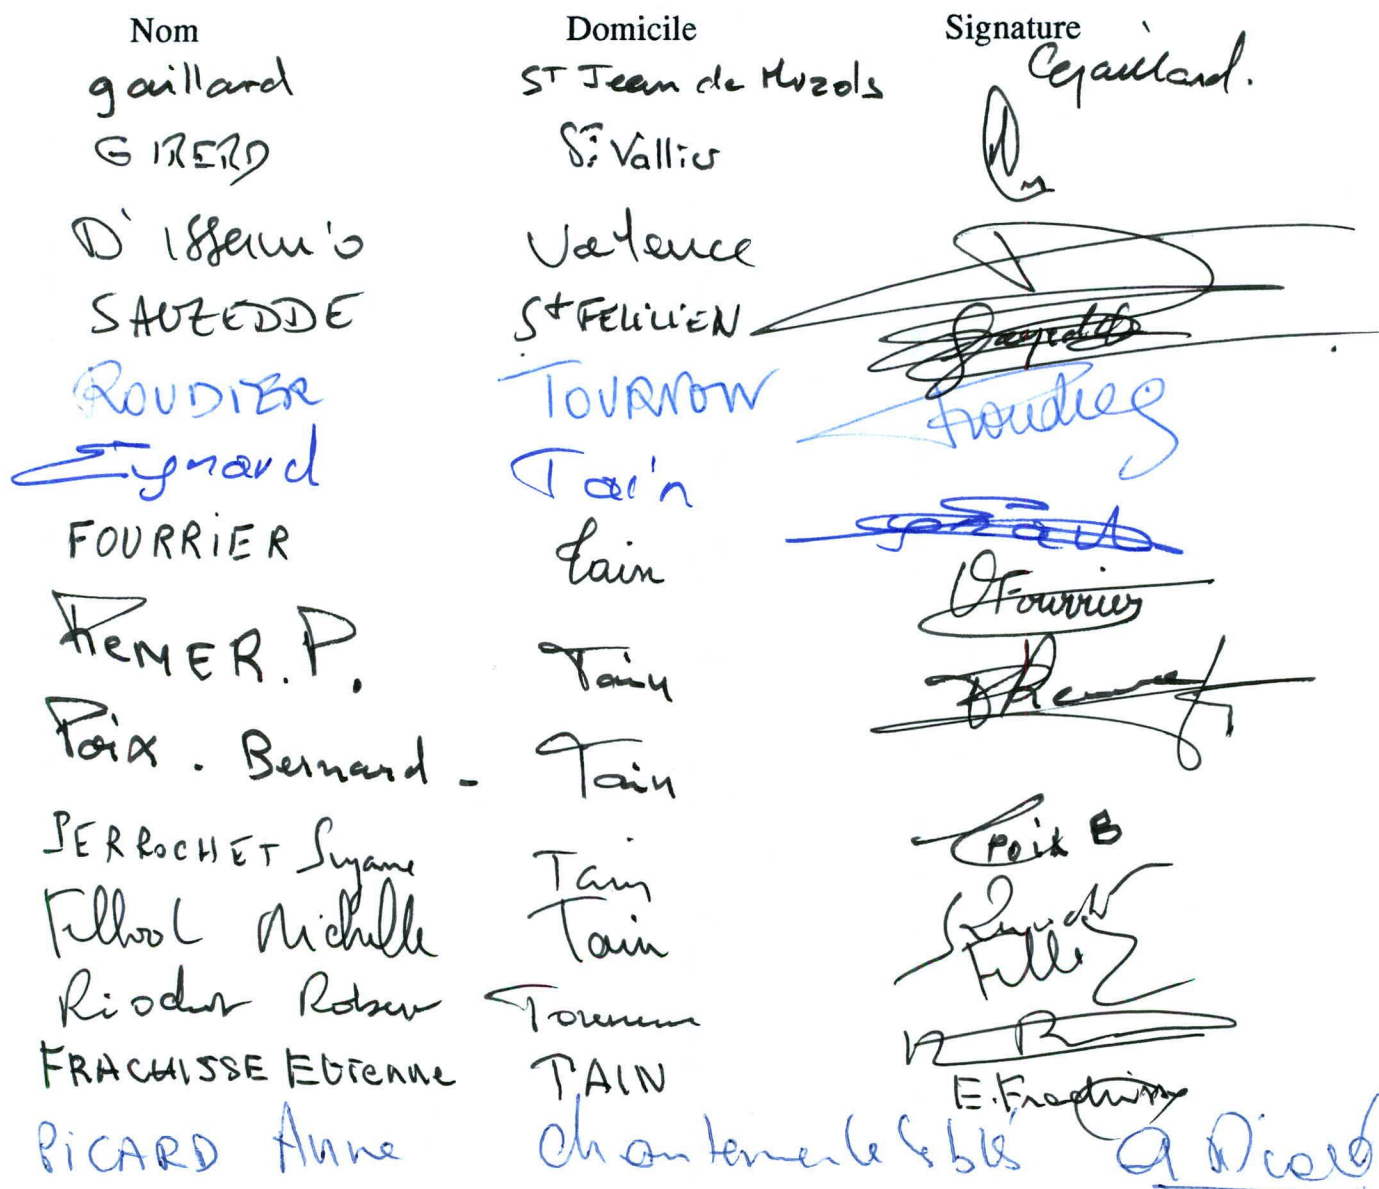 Nom Domicile Signature
gaillard ST Jean de Muzols CGaillard.
GIRERD St Vallier
D'Issernio Valence
SAUZEDDE St FELICIEN
ROUDIER TOURNON Roudier
Eynard Tain
FOURRIER Tain Fourrier
REMER.P. Tain
Poix. Bernard - Tain Poix B
PERROCHET Suzane Tain
Filhol Michelle Tain
Robert Tournon
FRACHISSE Etienne TAIN E. Frachisse
PiCARD Anne Chantemerle les blés A Picard